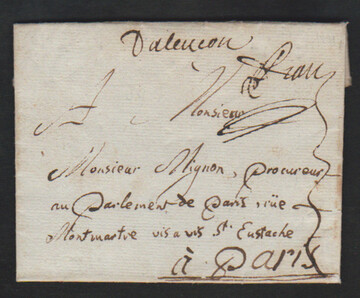 Dalençon
A Monsieur
Monsieur Mignon, Procureur
au Parlement de Paris, rüe
Montmartre vis a vis St. Eustache
à Paris